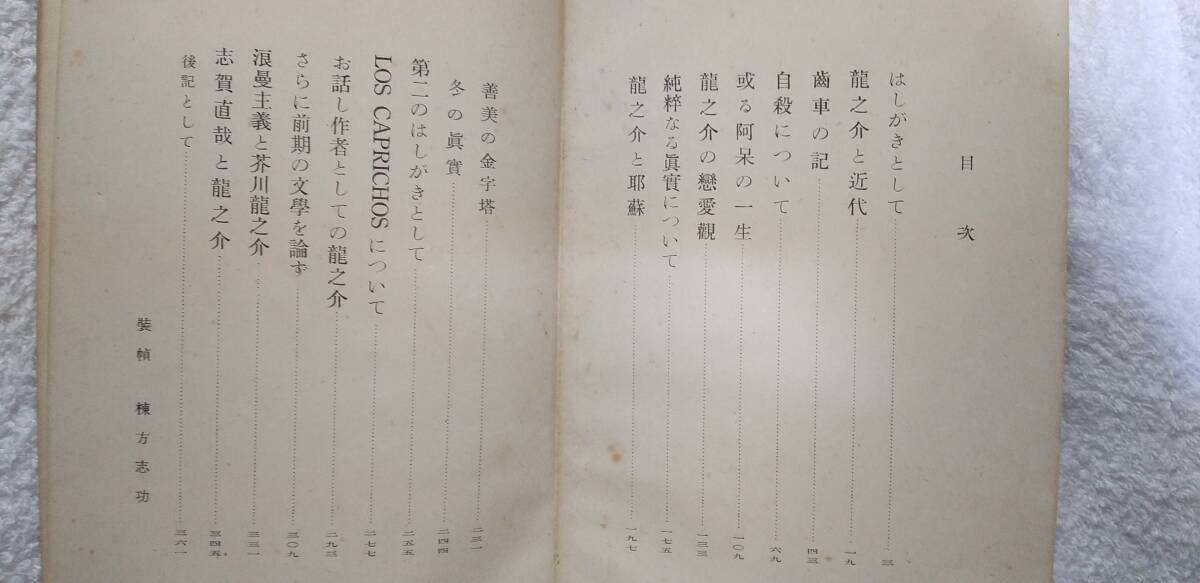 目次
はしがきとして……三
龍之介と近代……一九
齒車の記……四三
自殺について……六九
或る阿呆の一生……一〇九
龍之介の戀愛觀……一三三
純粹なる眞實について……一七五
龍之介と耶蘇……一九七
善美の金字塔……二三一
冬の眞實……二四四
第二のはしがきとして……二五五
LOS CAPRICHOSについて……二七七
お話し作者としての龍之介……二九三
さらに前期の文學を論ず……三〇九
浪曼主義と芥川龍之介……三三一
志賀直哉と龍之介……三四五
後記として……三六一
裝幀 棟方志功